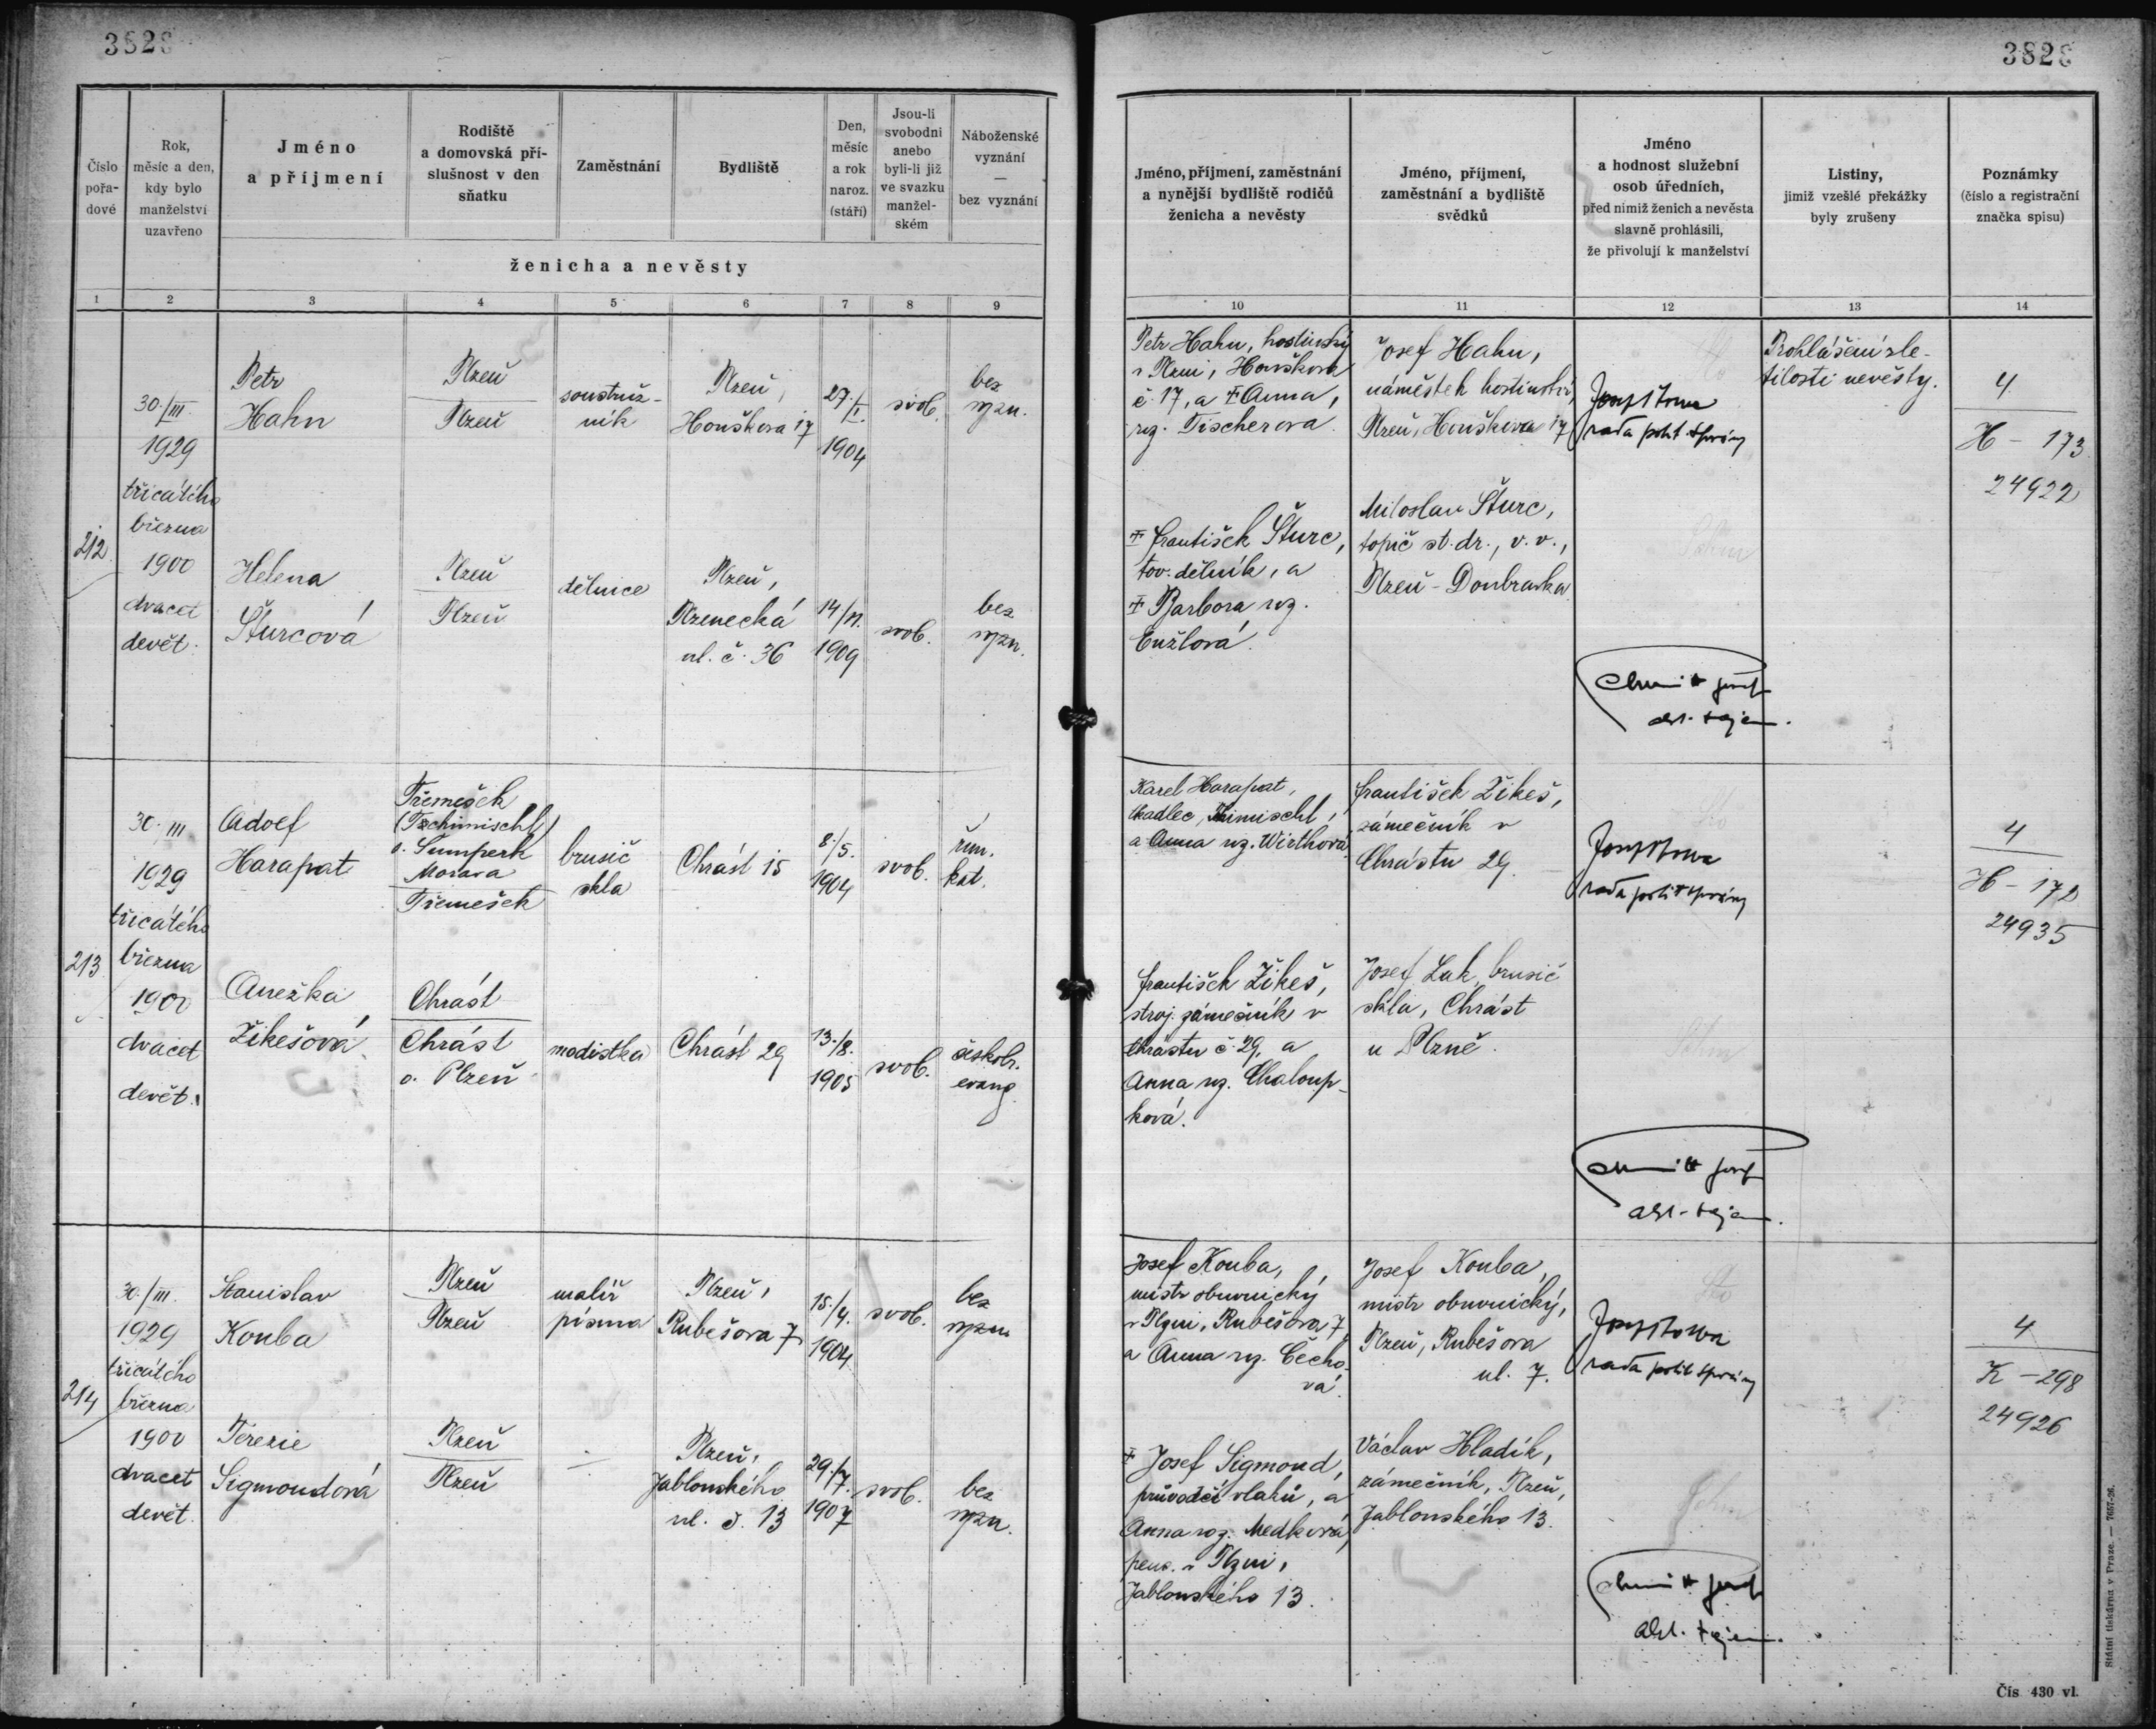 3828
3828
Číslo
pořa-
dové
Rok,
měsíc a den,
kdy bylo
manželství
uzavřeno
Jméno
a příjmení
Rodiště
a domovská pří-
slušnost v den
sňatku
Zaměstnání
Bydliště
Den,
měsíc
a rok
naroz.
(stáří)
Jsou-li
svobodni
anebo
byli-li již
ve svazku
manžel-
ském
Náboženské
vyznání
—
bez vyznání
ženicha a nevěsty
1 2 3 4 5 6 7 8 9
Jméno, příjmení, zaměstnání
a nynější bydliště rodičů
ženicha a nevěsty
Jméno, příjmení,
zaměstnání a bydliště
svědků
Jméno
a hodnost služební
osob úředních,
před nimiž ženich a nevěsta
slavně prohlásili,
že přivolují k manželství
Listiny,
jimiž vzešlé překážky
byly zrušeny
Poznámky
(číslo a registrační
značka spisu)
10 11 12 13 14
212
30./III.
1929
třicátého
března
1900
dvacet
devět.
Petr
Hahn
Plzeň
Plzeň
soustruž-
ník
Plzeň,
Houškova 17
27./I.
1904
svob.
bez
vyzn.
Helena
Šturcová
Plzeň
Plzeň
dělnice
Plzeň,
Plzenecká
ul. č. 36
14/
1909
svob.
bez
vyzn.
Petr Hahn, hostinský
v Plzni, Houškova
č. 17, a ‡ Anna,
roz. Fischerova.
‡ František Šturc,
tov. dělník, a
‡ Barbora roz.
Enžlová.
Josef Hahn,
náměstek hostinství,
Plzeň, Houškova 17
Miloslav Šturc,
topič st. dr., v. v.,
Plzeň - Doubravka
rada polit správy
Josef
Prohlášení zle-
tilosti nevěsty.
4
H - 173
24922
213
30. III
1929
třicátého
března
1900
dvacet
devět.
Adolf
Harapat
Třemešek
(Tschimischl)
o. Šumperk
Morava
Třemešek
brusič
skla
Chrást 15
8./5.
1904
svob.
řím.
kat.
Anežka
Žikešová
Chrást
Chrást
o. Plzeň
modistka
Chrást 29
13./8.
1905
svob.
českobr.
evang.
Karel Harapat,
tkadlec,
a Anna roz. Wirthová
František Žikeš,
stroj. zámečník v
Chrástu č. 29, a
Anna roz. Chaloup-
ková.
František Žikeš,
zámečník v
Chrástu 29.
Josef Lak, brusič
skla, Chrást
u Plzně.
rada polit správy
Josef
4
H - 172
24935
214
30./III.
1929
třicátého
března
1900
dvacet
devět.
Stanislav
Kouba
Plzeň
Plzeň
malíř
písma
Plzeň,
Rubešova 7
15./4.
1904
svob.
bez
vyzn.
Terezie
Sigmondová
Plzeň
Plzeň
—
Plzeň,
Jablonského
ul. č. 13
29./7.
1907
svob.
bez
vyzn.
Josef Kouba,
mistr obuvnický
v Plzni, Rubešova 7
a Anna roz. Čecho-
vá.
‡ Josef Sigmond,
průvodčí vlaků, a
Anna roz. Medková,
pens. v Plzni,
Jablonského 13.
Josef Kouba,
mistr obuvnický,
Plzeň, Rubešova
ul. 7.
Václav Hladík,
zámečník, Plzeň,
Jablonského 13.
rada polit správy
Josef
4
K - 298
24926
Státní tiskárna v Praze. — 7657-26.
Čís 430 vl.